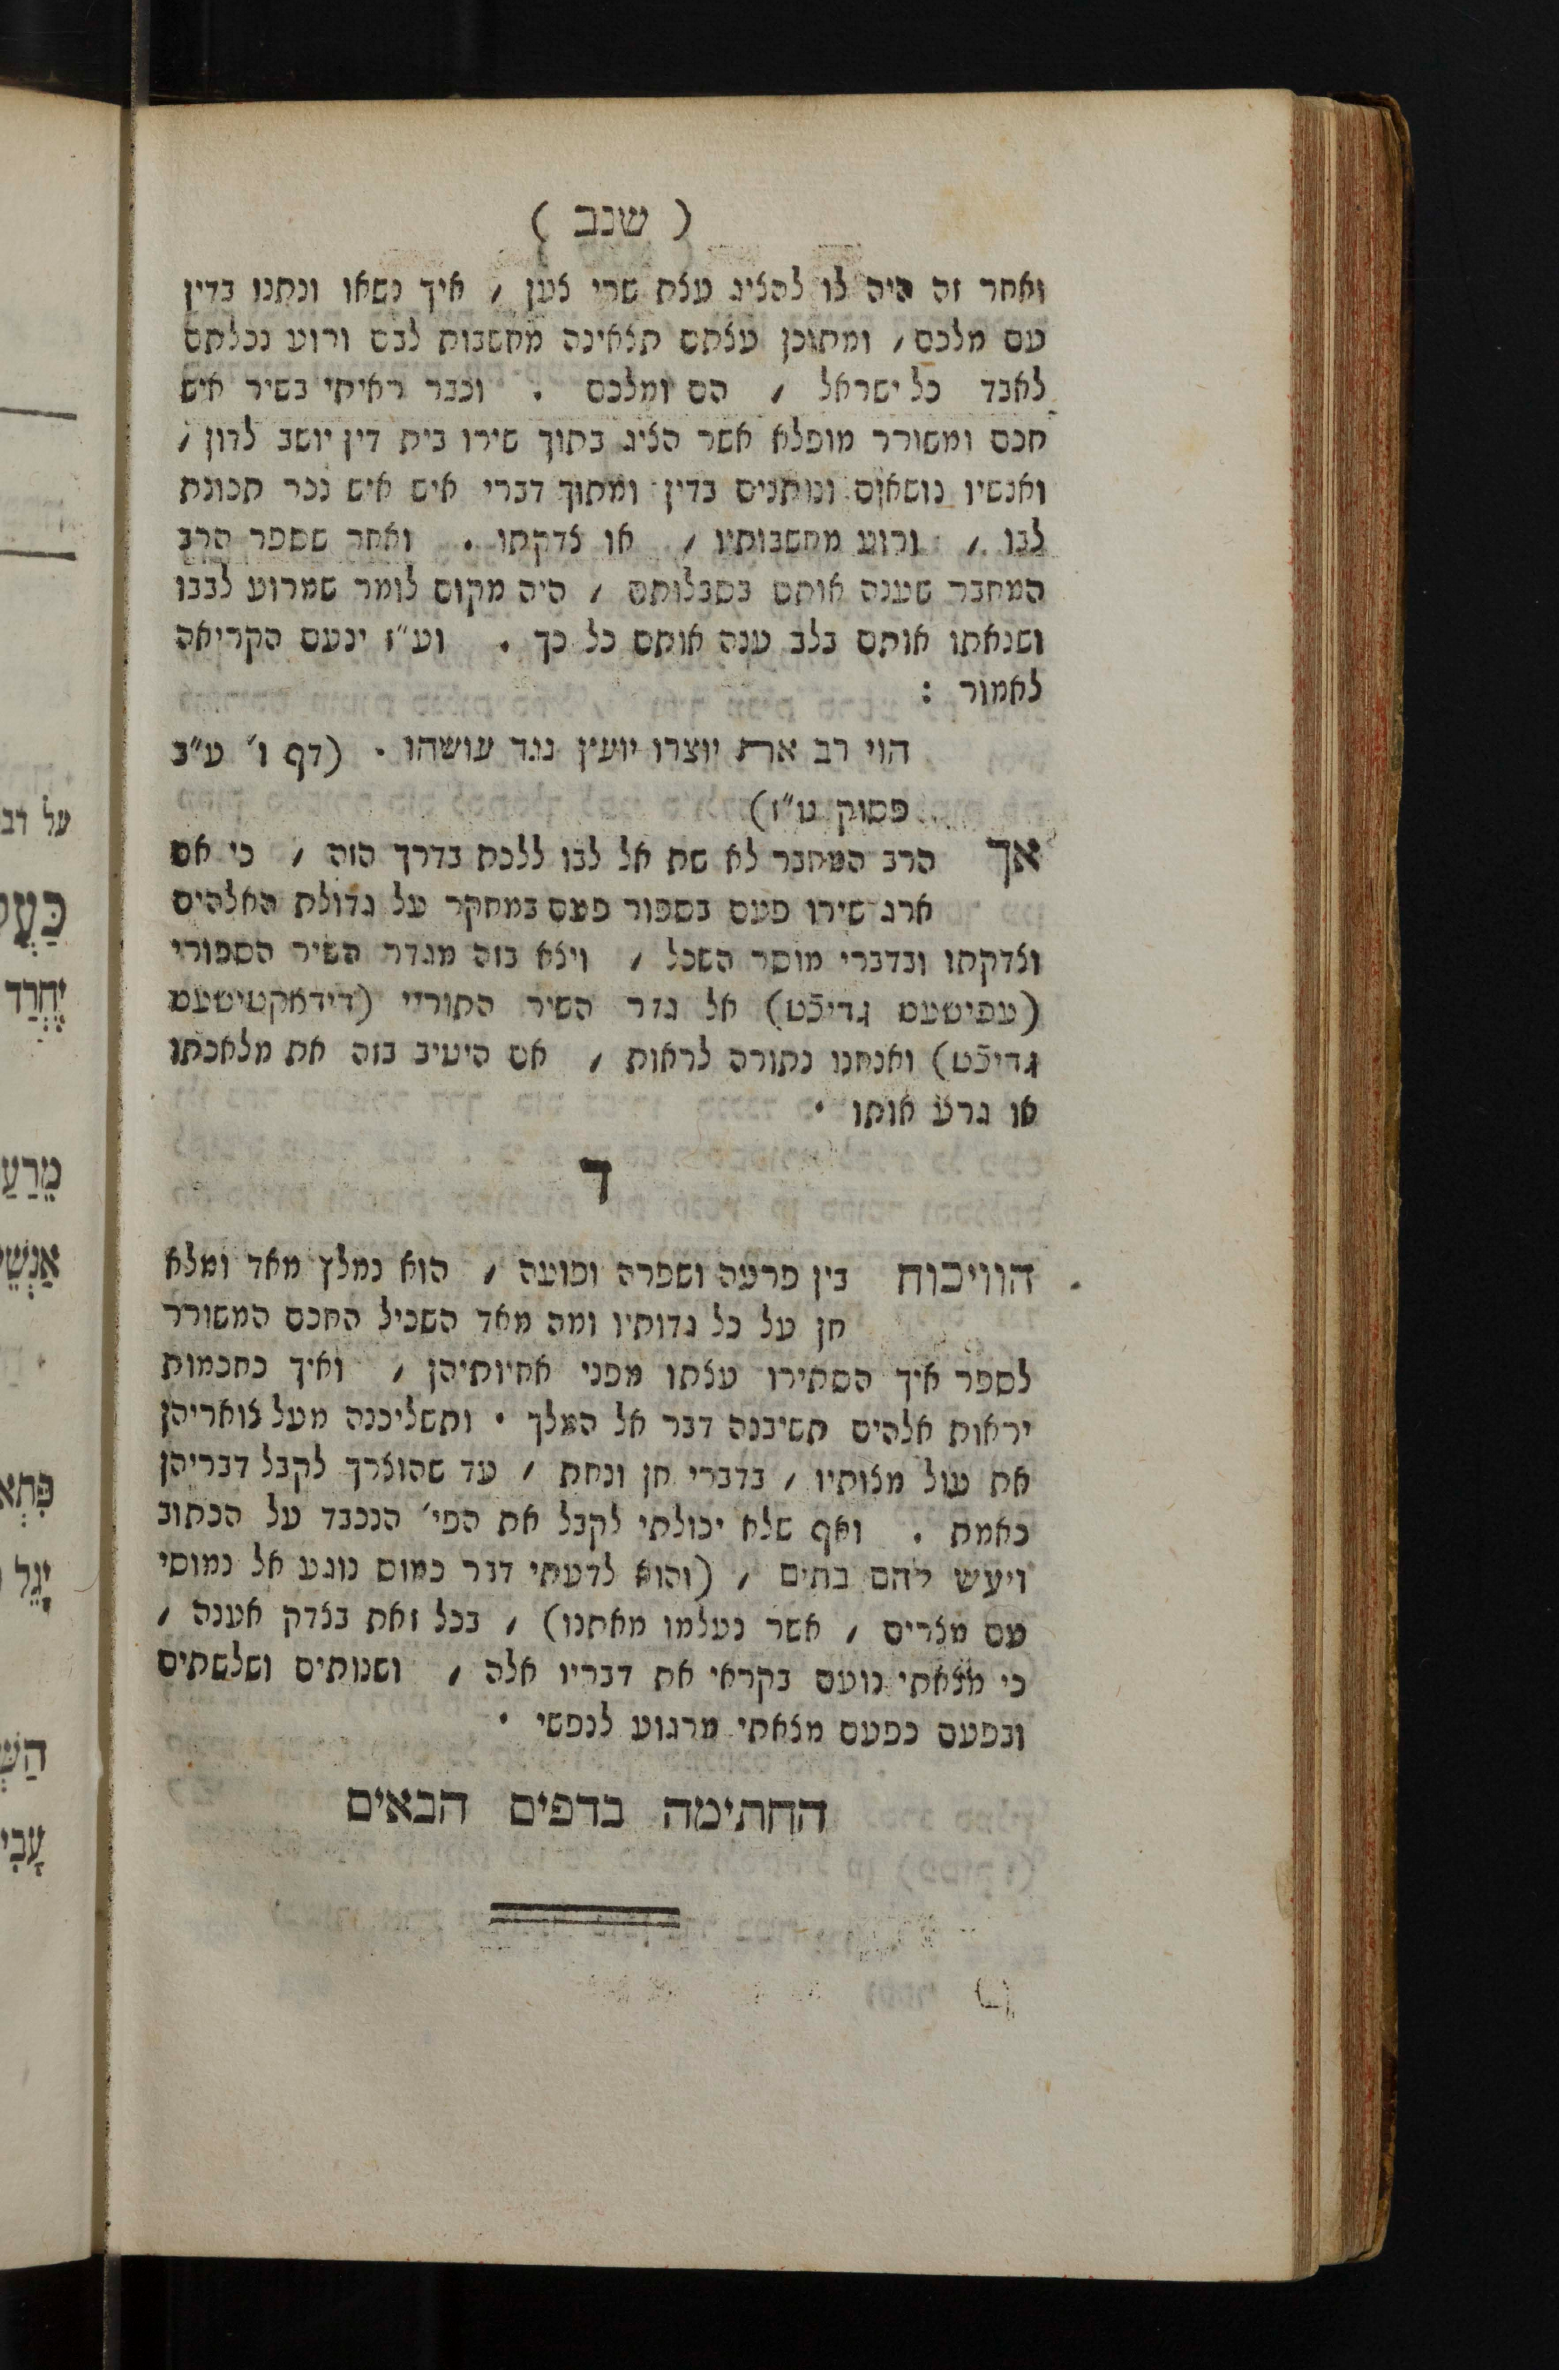 ( שנב )
ואחר זה היה לו להציג עצת שרי צען , איך נשאו ונתנו בדין
עם מלכם , ומתוכן עצתם תצאינה מחשבות לבם ורוע נכלתם
לאבד כל ישראל , הם ומלכם . וכבר ראיתי בשיר איש
חכם ומשורר מופלא אשר הציג בתוך שירו בית דין יושב לדון ,
ואנשיו נושאים ונותנים בדין ומתוך דברי איש איש נכר תכונת
לבו , ורוע מחשבותיו , או צדקתו . ואחר שספר הרב
המחבר שענה אותם בסבלותם , היה מקום לומר שמרוע לבבו
ושנאתו אותם בלב ענה אותם כל כך . וע״ז ינעם הקריאה
לאמור :
הוי רב את יוצרו יועץ נגד עושהו . (דף ו׳ ע״ב
פסוק ט״ז)
אך הרב המחבר לא שת אל לבו ללכת בדרך הזה , כי אם
ארג שירו פעם בספור פעם במחקר על גדולת האלהים
וצדקתו ובדברי מוסר השכל , ויצא בזה מגדר השיר הספורי
(עפישעס גדיכֿט) אל גדר השיר התוריי (דידאקטישעס
גדיכֿט) ואנחנו נתורה לראות , אם היטיב בזה את מלאכתו
או גרע אותו .
ד
הוויכוח בין פרעה ושפרה ופועה , הוא נמלץ מאד ומלא
חן על כל גדותיו ומה מאד השכיל החכם המשורר
לספר איך הסתירו עצתו מפני אחיותיהן , ואיך כחכמות
יראות אלהים תשיבנה דבר אל המלך . ותשליכנה מעל צואריהן
את עול מצותיו , בדברי חן ונחת , עד שהוצרך לקבל דבריהן
כאמת . ואף שלא יכולתי לקבל את הפי׳ הנכבד על הכתוב
ויעש להם בתים , (והוא לדעתי דבר כמוס נוגע אל נמוסי
עם מצרים , אשר נעלמו מאתנו) , בכל זאת בצדק אענה ,
כי מצאתי נועם בקראי את דבריו אלה , ושנותים ושלשתים
ובפעם כפעם מצאתי מרגוע לנפשי .
החתימה בדפים הבאים